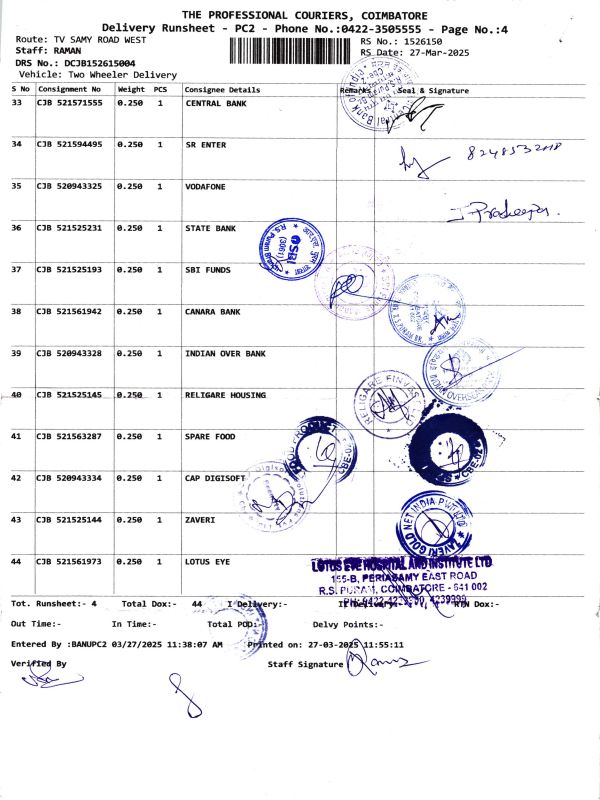 THE PROFESSIONAL COURIERS, COIMBATORE
Delivery Runsheet - PC2 - Phone No.:0422-3505555 - Page No.:4
Route: TV SAMY ROAD WEST RS No.: 1526150
Staff: RAMAN RS Date: 27-Mar-2025
DRS No.: DCJB152615004
Vehicle: Two Wheeler Delivery
S No Consignment No Weight PCS Consignee Details Remarks Seal & Signature
33 CJB 521571555 0.250 1 CENTRAL BANK
34 CJB 521594495 0.250 1 SR ENTER
35 CJB 520943325 0.250 1 VODAFONE
J Pradeepa
36 CJB 521525231 0.250 1 STATE BANK
SBI
37 CJB 521525193 0.250 1 SBI FUNDS
38 CJB 521561942 0.250 1 CANARA BANK
39 CJB 520943328 0.250 1 INDIAN OVER BANK
40 CJB 521525145 0.250 1 RELIGARE HOUSING
41 CJB 521563287 0.250 1 SPARE FOOD
42 CJB 520943334 0.250 1 CAP DIGISOFT
43 CJB 521525144 0.250 1 ZAVERI
ZAVERI GOLD NET INDIA
44 CJB 521561973 0.250 1 LOTUS EYE
LOTUS EYE HOSPITAL AND INSTITUTE LTD
155-B, PERIASAMY EAST ROAD
R.S. PURAM, COIMBATORE - 641 002
Tot. Runsheet:- 4 Total Dox:- 44 I Delivery:- II Delivery:- RTN Dox:-
Out Time:- In Time:- Total POD:- Delvy Points:-
Entered By :BANUPC2 03/27/2025 11:38:07 AM Printed on: 27-03-2025 11:55:11
Verified By Staff Signature